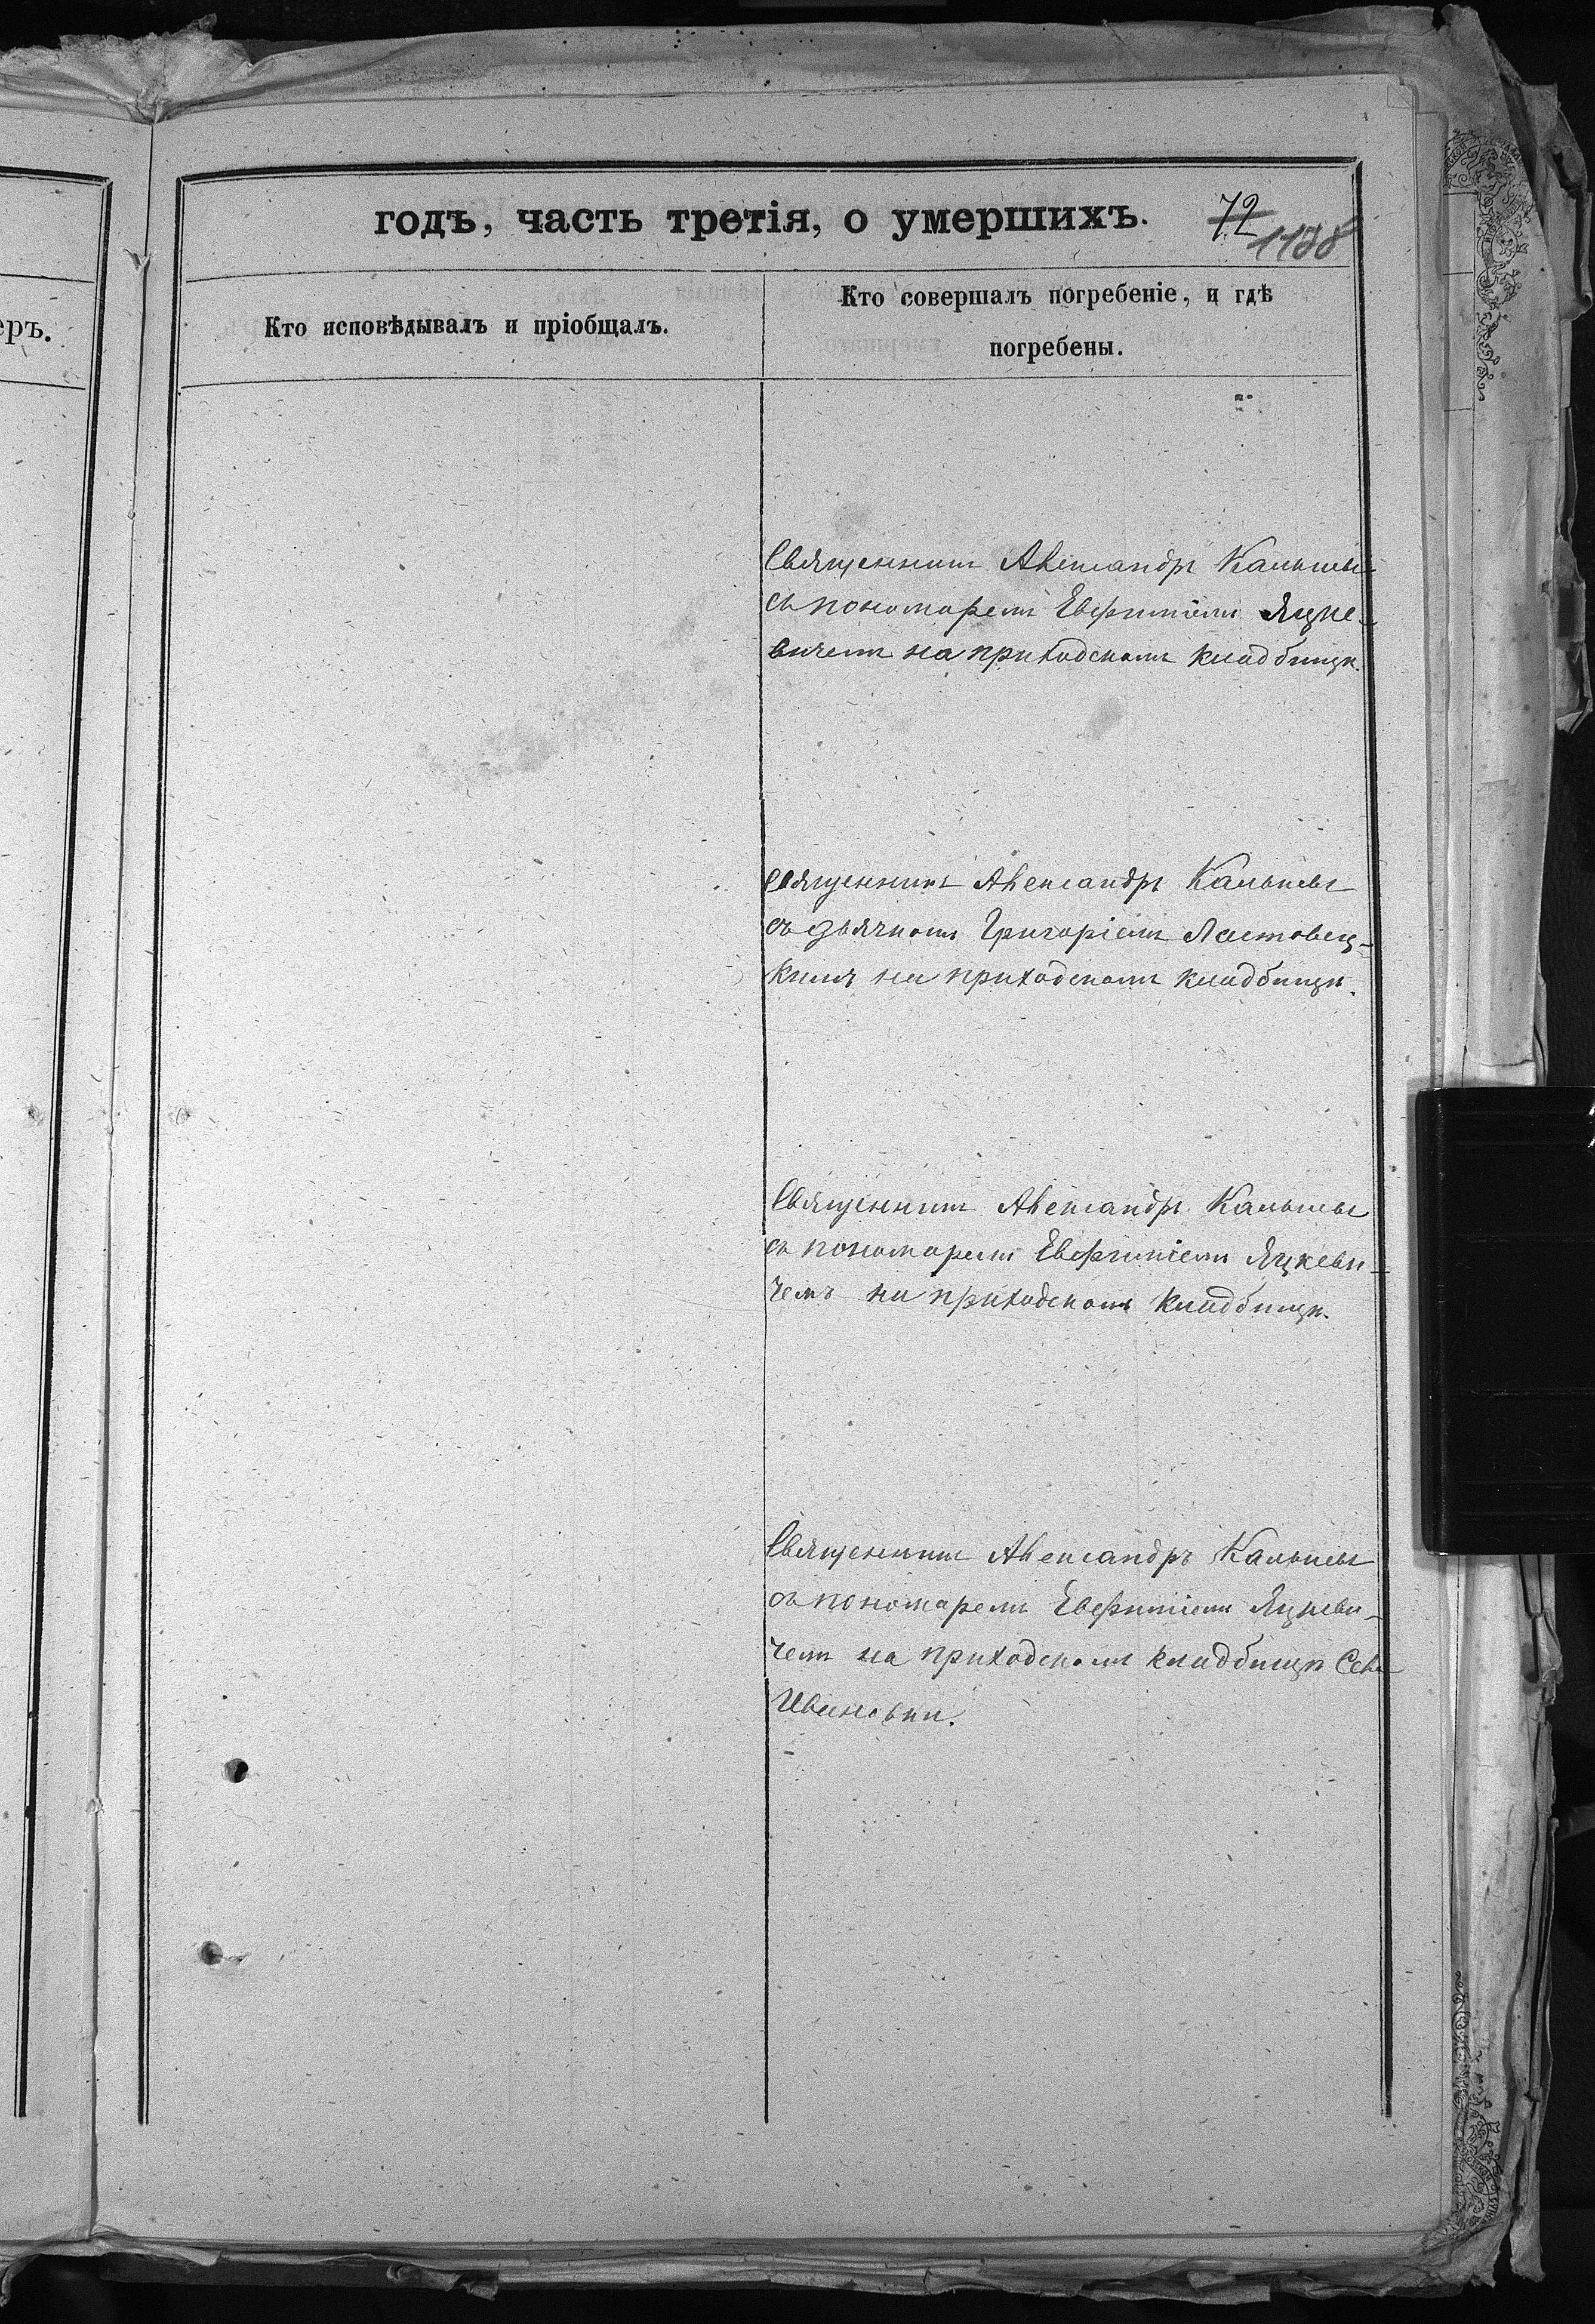 еръ.
годъ, часть третія, о умершихъ.
72
1188
Кто исповѣдывалъ и пріобщалъ.
Кто совершалъ погребеніе, и гдѣ
погребены.
Священникъ Александръ
съ пономаремъ Евфиміемъ Яцке-
вичемъ на приходскомъ кладбищѣ.
Священникъ Александръ
съ дьячкомъ Григоріемъ Ластовец-
кимъ на приходскомъ кладбищѣ.
Священникъ Александръ
съ пономаремъ Евфиміемъ Яцкеви-
чемъ на приходскомъ кладбищѣ.
Священникъ Александръ
съ пономаремъ Евфиміемъ Яцкеви-
чемъ на приходскомъ кладбищѣ
Ивановки.